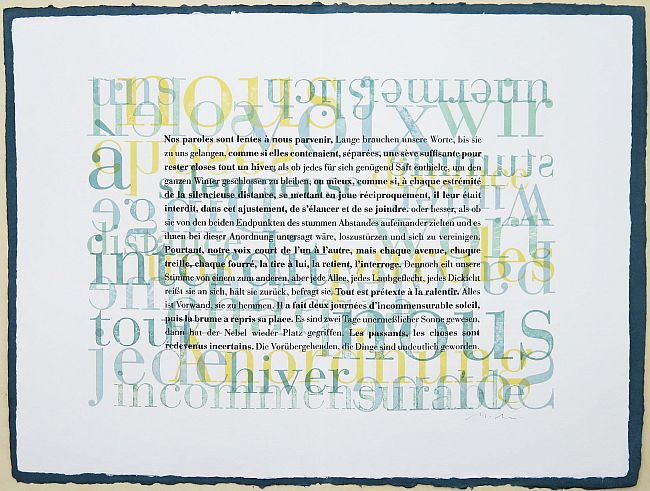 nous
unermeßlich
voix wir
Nos paroles sont lentes à nous parvenir, Lange brauchen unsere Worte, bis sie
zu uns gelangen, comme si elles contenaient, séparées, une sève suffisante pour
rester closes tout un hiver; als ob jedes für sich genügend Saft enthielte, um den
ganzen Winter geschlossen zu bleiben; ou mieux, comme si, à chaque extrémité
de la silencieuse distance, se mettant en joue réciproquement, il leur était
interdit, dans cet ajustement, de s'élancer et de se joindre. oder besser, als ob
sie von den beiden Endpunkten des stummen Abstandes aufeinander zielten und es
ihnen bei dieser Anordnung untersagt wäre, loszustürzen und sich zu vereinigen.
Pourtant, notre voix court de l'un à l'autre, mais chaque avenue, chaque
treille, chaque fourré, la tire à lui, la retient, l'interroge. Dennoch eilt unsere
Stimme von einem zum anderen, aber jede Allee, jedes Laubgeflecht, jedes Dickicht
reißt sie an sich, hält sie zurück, befragt sie. Tout est prétexte à la ralentir. Alles
ist Vorwand, sie zu hemmen. Il a fait deux journées d'incommensurable soleil,
puis la brume a repris sa place. Es sind zwei Tage unermeßlicher Sonne gewesen,
dann hat der Nebel wieder Platz gegriffen. Les passants, les choses sont
redevenus incertains. Die Vorübergehenden, die Dinge sind undeutlich geworden.
à
silencieuse
interdit
paroles
tout
nous
jede
Anordnung
hiver
incommensurable